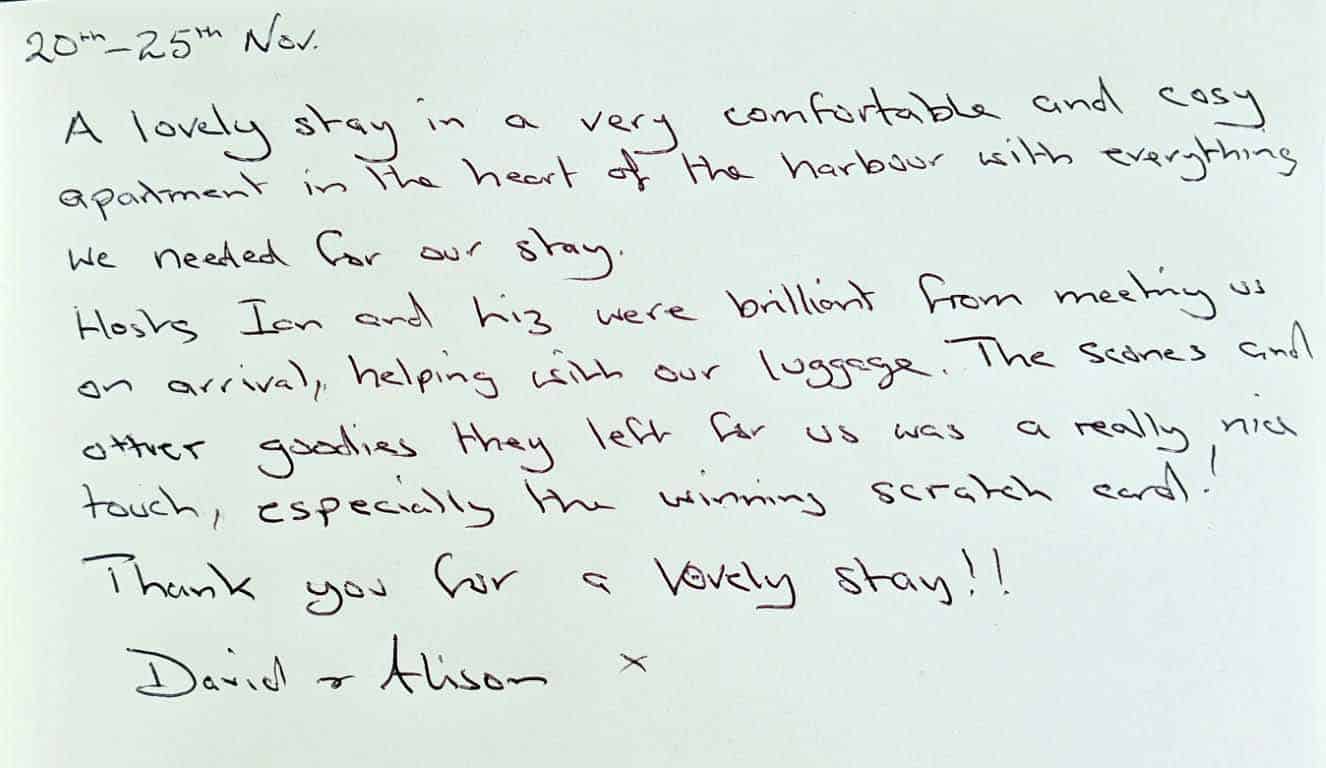 20th-25th Nov.
A lovely stay in a very comfortable and cosy
apartment in the heart of the harbour with everything
we needed for our stay.
Hosts Ian and Liz were brilliant from meeting us
on arrival, helping with our luggage. The scones and
other goodies they left for us was a really nice
touch, especially the winning scratch card!
Thank you for a lovely stay!!
David & Alison x